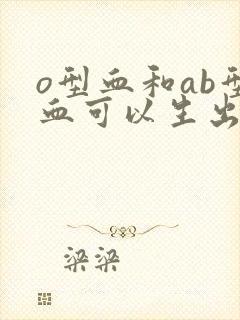 o型血和ab型
血可以生出
梁梁